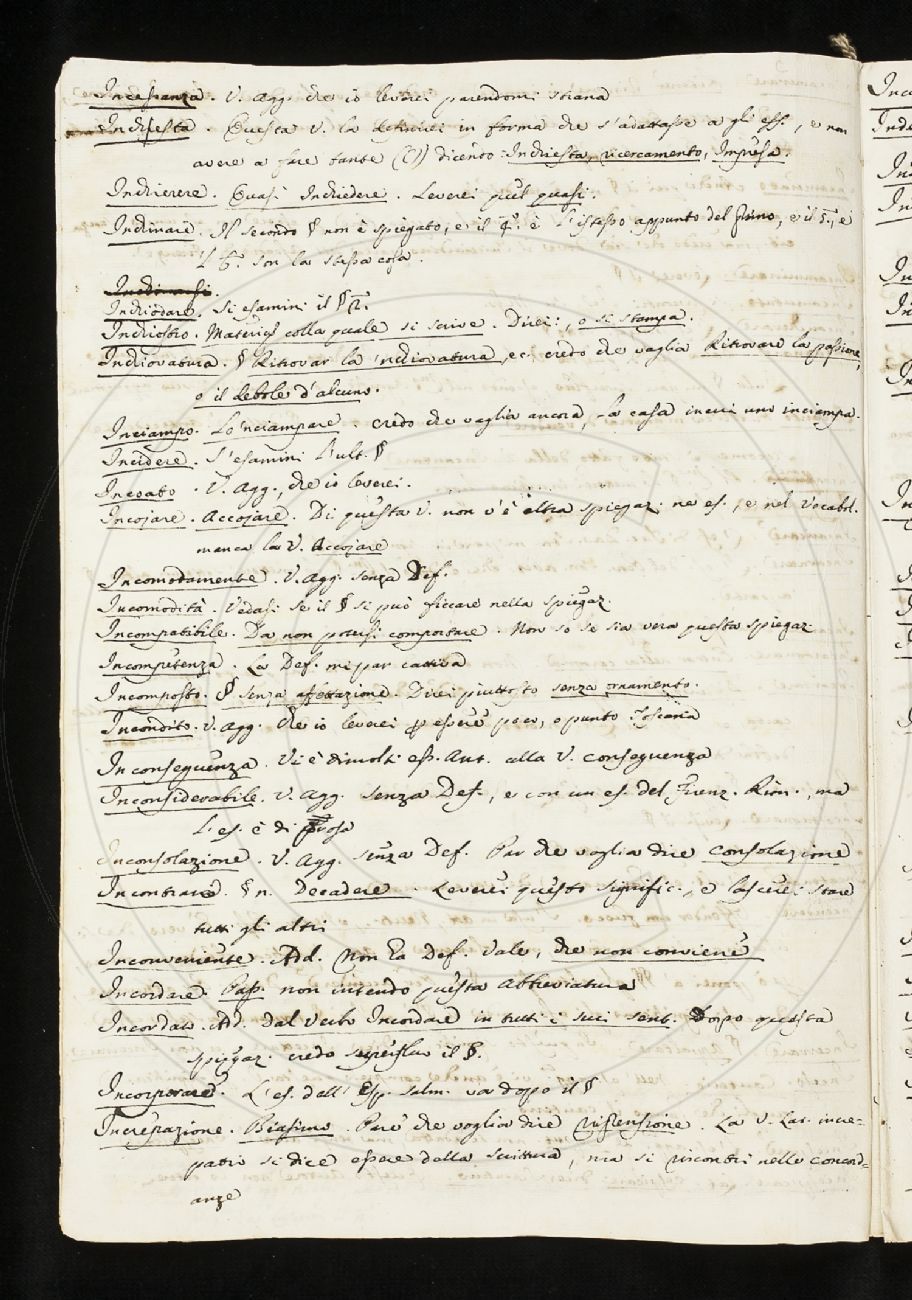 Incessanza. V. Agg. che io leverei parendomi strana
Inchiesta. Questa V. la definirei in forma che s'adattasse a gli ess., e non
avere a fare tante (()) dicendo Inchiesta, ricercamento, Impresa.
Inchierere. Quasi Inchiedere. Leverei quel quasi.
Inchinare. Il secondo § non è spiegato, e il 4.° è l'istesso appunto del primo, e il 5.°, e
l' 6.° son la stessa cosa.
Inchiodare. Si esamini il § 2.
Inchiostro. Materia colla quale si scrive. Direi: o si stampa.
Inchiovatura. § Ritrovar la 'nchiovatura, ec. credo che vaglia Ritrovare la passione,
o il debole d'alcuno.
Inciampo. Lo 'nciampare. credo che vaglia ancora, la cosa in cui uno inciampa.
Incidere. S'esamini l'ult. §
Incoato. V. Agg., che io leverei.
Incojare. Accojare. Di questa V. non v'è altra spiegaz. ne es., e nel Vocabol.
manca la V. Accojare
Incomodamente. V. Agg. senza Def.
Incomodità. Vedasi se il § si può ficcare nella spiegaz.
Incompatibile. Da non potersi comportare. Non so se sia vera questa spiegaz.
Incompetenza. La Def. mi par cattiva
Incomposto. § senza affettazione. Direi piuttosto senza ornamento.
Incondito. V. Agg. che io leverei p essere poco, o punto Toscana
Inconseguenza. Vi è dimolti ess. Ant. alla V. conseguenza
Inconsiderabile. V. Agg. senza Def., e con un es. del Firenz. Rim., ma
l'es. è di prosa
Inconsolazione. V. Agg. senza Def. Par che voglia dire consolazione
Incontrare. § n. Decadere. Leverei questo signific., e lascerei stare
tutti gli altri
Inconveniente. Add. Non ha Def. Vale, che non conviene
Incordare. Pass. non intendo questa abbreviatura
Incordato. Ad. dal verbo Incordare in tutti i suoi sent. Dopo questa
spiegaz. credo superfluo il §.
Incorporare. L'es. dell' Esp. Salm. va doppo il §
Increpazione. Biasimo. Pare che voglia dire riprensione. La V. Lat. incre-
patio si dice essere della scrittura, ma si riscontri nelle concord-
anze